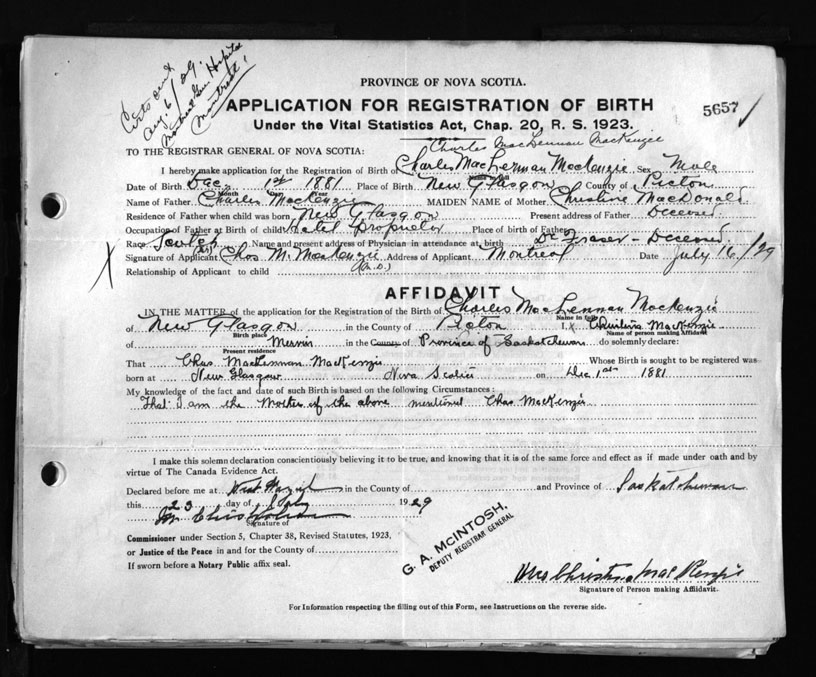 Certs sent
Aug 6/29.
Montreal Gen. Hospital
Montreal.
PROVINCE OF NOVA SCOTIA.
APPLICATION FOR REGISTRATION OF BIRTH
5657
Under the Vital Statistics Act, Chap. 20, R. S. 1923.
Charles MacLennan MacKenzie
TO THE REGISTRAR GENERAL OF NOVA SCOTIA:
I hereby make application for the Registration of Birth of Charles MacLennan MacKenzie Sex Male
Date of Birth Dec. 1st 1881 Place of Birth New Glasgow County of Pictou
Month Day Year
Name of Father Charles MacKenzie MAIDEN NAME of Mother Christine MacDonald
Residence of Father when child was born New Glasgow Present address of Father Deceased
Occupation of Father at Birth of child Hotel Proprietor Place of birth of Father
Race Scotch Name and present address of Physician in attendance at birth Dr Fraser - Deceased
Signature of Applicant Chas. M. MacKenzie Address of Applicant Montreal Date July 16/29
Relationship of Applicant to child (M.D.)
AFFIDAVIT
IN THE MATTER of the application for the Registration of the Birth of Charles MacLennan MacKenzie
Name in full
of New Glasgow in the County of Pictou I, Christina MacKenzie
Birth place Name of person making Affidavit
of in the County of Province of Saskatchewan do solemnly declare:
Present residence
That Chas. MacLennan MacKenzie Whose Birth is sought to be registered was
born at New Glasgow Nova Scotia on Dec 1st 1881
My knowledge of the fact and date of such Birth is based on the following Circumstances:
That I am the Mother of the above mentioned Chas MacKenzie
I make this solemn declaration conscientiously believing it to be true, and knowing that it is of the same force and effect as if made under oath and by
virtue of The Canada Evidence Act.
Declared before me at in the County of and Province of Saskatchewan
this 23 day of July 1929
Signature of
Commissioner under Section 5, Chapter 38, Revised Statutes, 1923,
or Justice of the Peace in and for the County of
If sworn before a Notary Public affix seal.
G. A. McINTOSH,
DEPUTY REGISTRAR GENERAL
Mrs Christina MacKenzie
Signature of Person making Affidavit.
For Information respecting the filling out of this Form, see Instructions on the reverse side.